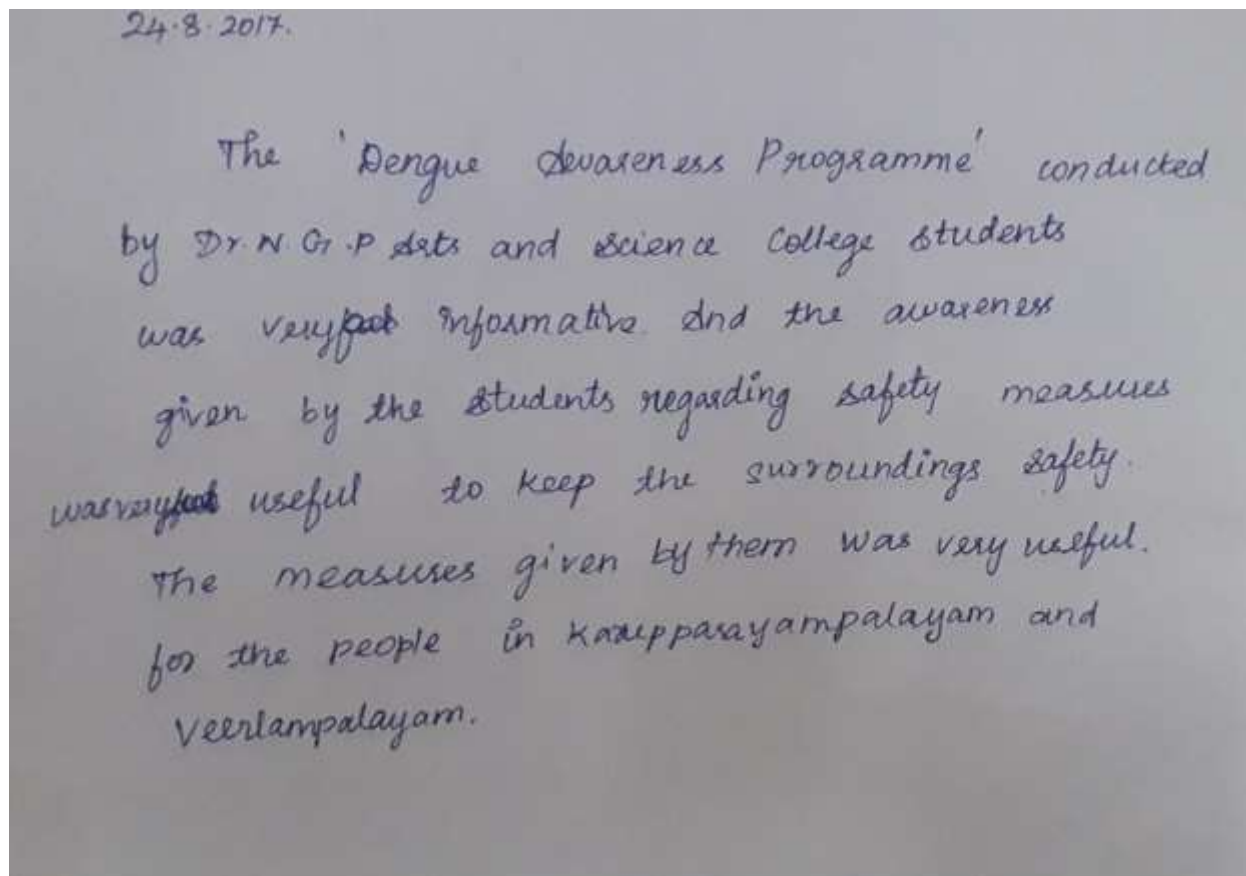 24.8.2017.
The 'Dengue Awareness Programme' conducted
by Dr. N. G. P Arts and Science College students
was very informative. And the awareness
given by the students regarding safety measures
was very useful to keep the surroundings safety.
The measures given by them was very useful.
for the people in Karupparayampalayam and
Veerlampalayam.